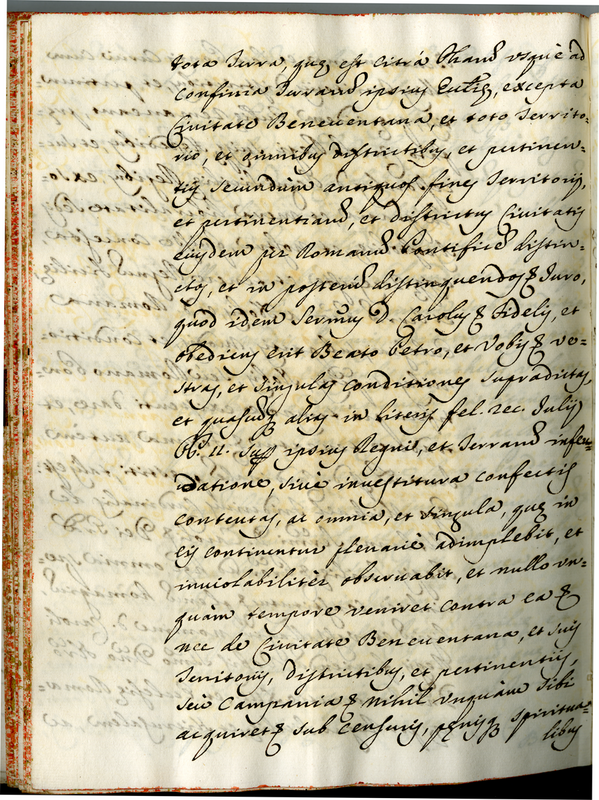 tota Terra, quȩ est citrà Pharũ usquè ad
confinia Terrarũ ipsius Ecclȩ, excepta
Civitate Beneventana, et toto Territo-
rio, et omnibus districtibus, et pertinen-
tijs secundùm antiquos fines Territorij,
et pertinentiarũ, et districtus Civitatis
eiusdem per Romanũ Pontificẽ distin-
ctos, et in posterũ distinguendos & Iuro,
quod idem Sermus D. Carolus & Fidelis, et
obediens erit Beato Petro, et Vobis & ve-
stras, et singulas conditiones supradictas,
et quascunq alias in literis fel. rec. Iulij
PP. II. supp ipsius Regni, et Terrarũ infeu-
datione, sivè investitura confectis
contentas, ac omnia, et singula, quȩ in
eis continentur plenariè adimplebit, et
inviolabilitèr observabit, et nullo un-
quàm tempore veniret contra ea &
nec de Civitate Beneventana, et suis
Territorijs, districtibus, et pertinentijs,
seù Campania & nihil unquàm sibi
acquiret & sub censuris, pȩnisq spiritua-
libus